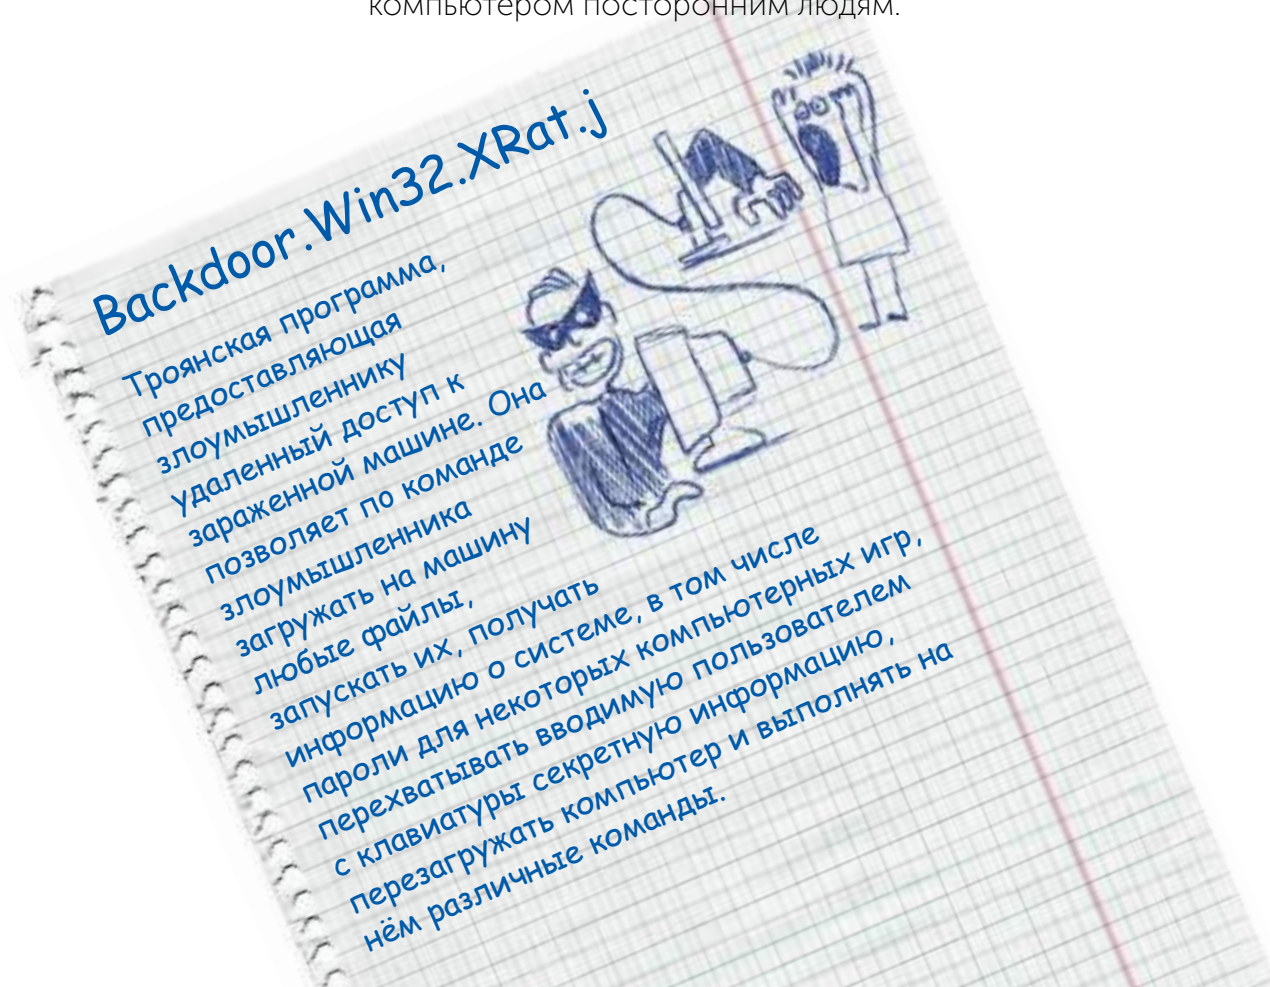 компьютером посторонним людям.
Backdoor.Win32.XRat.j
Троянская программа,
предоставляющая
злоумышленнику
удаленный доступ к
зараженной машине. Она
позволяет по команде
злоумышленника
загружать на машину
любые файлы,
запускать их, получать
информацию о системе, в том числе
пароли для некоторых компьютерных игр,
перехватывать вводимую пользователем
с клавиатуры секретную информацию,
перезагружать компьютер и выполнять на
нём различные команды.